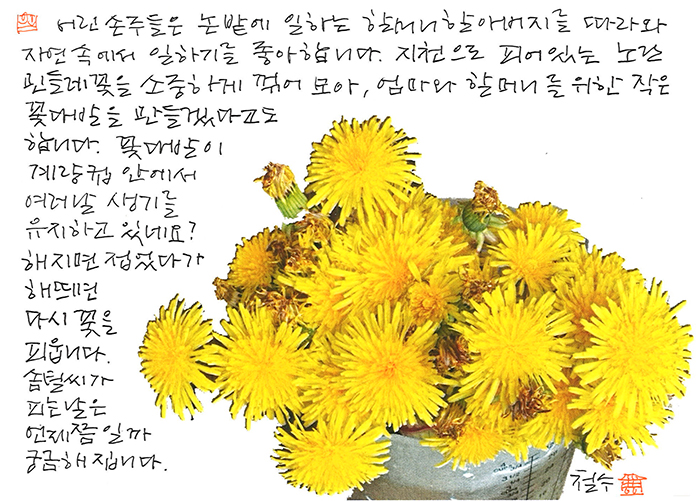 어린 손주들은 논밭에 일하는 할머니할아버지를 따라와
자연속에서 일하기를 좋아합니다. 지천으로 피어있는 노란
민들레꽃을 소중하게 꺾어 모아, 엄마와 할머니를 위한 작은
꽃다발을 만들겠다고도
합니다. 꽃다발이
계량컵 안에서
여러날 생기를
유지하고 있네요?
해지면 접었다가
해뜨면
다시 꽃을
피웁니다.
솜털씨가
피는날은
언제쯤일까
궁금해집니다.
철수